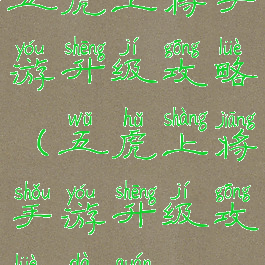 五虎上将手
yóu shēng jí gōng lüè
游升级攻略
wǔ hǔ shàng jiāng
(五虎上将
shǒu yóu shēng jí gōng
手游升级攻
lüè dà quán